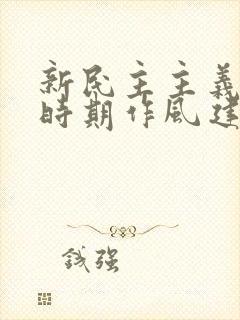 新民主主義
時期作風建
强